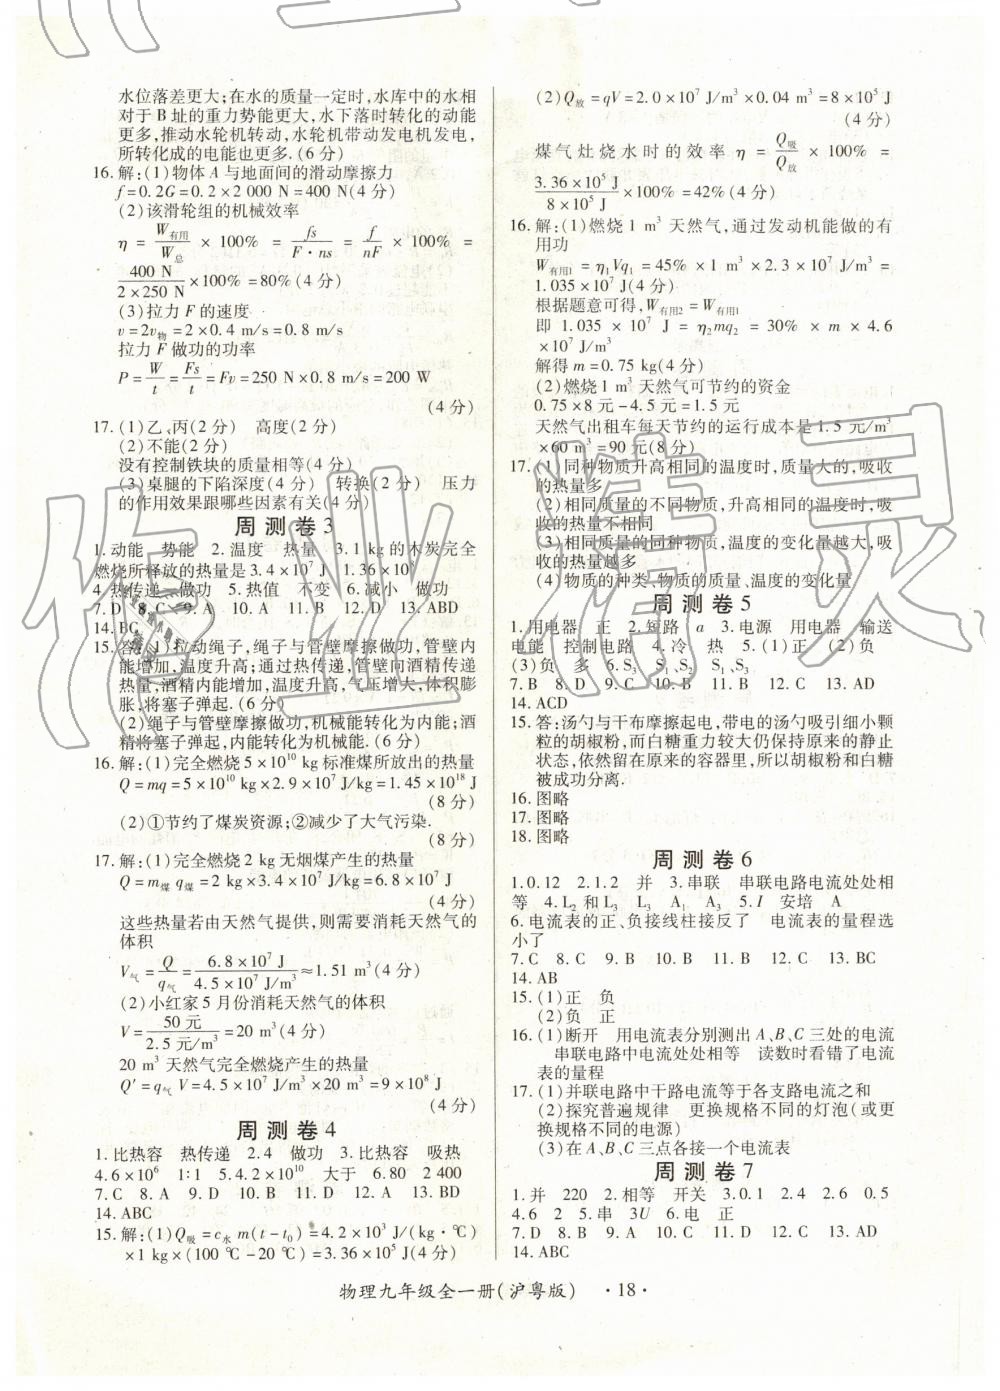 水位落差更大;在水的质量一定时,水库中的水相
对于 B 址的重力势能更大,水下落时转化的动能
更多,推动水轮机转动,水轮机带动发电机发电,
所转化成的电能也更多.(6 分)
16. 解:(1)物体 A 与地面间的滑动摩擦力
f=0.2G=0.2×2 000 N=400 N(4 分)
(2)该滑轮组的机械效率
η = W有用/W总 × 100% = fs/(F·ns) = f/(nF) × 100% =
400 N/(2×250 N) ×100% =80%(4 分)
(3)拉力 F 的速度
v=2v物=2×0.4 m/s=0.8 m/s
拉力 F 做功的功率
P=W/t=Fs/t=Fv=250 N×0.8 m/s=200 W
(4 分)
17. (1)乙、丙(2 分) 高度(2 分)
(2)不能(2 分)
没有控制铁块的质量相等(4 分)
(3)桌腿的下陷深度(4 分) 转换(2 分) 压力
的作用效果跟哪些因素有关(4 分)
周 测 卷 3
1. 动能 势能 2. 温度 热量 3. 1 kg 的木炭完全
燃烧所释放的热量是 3.4×10⁷ J 1.36×10⁸
4. 热传递 做功 5. 热值 不变 6. 减小 做功
7. D 8. C 9. A 10. A 11. B 12. D 13. ABD
14. BC
15. 答:(1)拉动绳子,绳子与管壁摩擦做功,管壁内
能增加,温度升高;通过热传递,管壁向酒精传递
热量,酒精内能增加,温度升高,气压增大,体积膨
胀,将塞子弹起.(6 分)
(2)绳子与管壁摩擦做功,机械能转化为内能;酒
精将塞子弹起,内能转化为机械能.(6 分)
16. 解:(1)完全燃烧 5×10¹⁰ kg 标准煤所放出的热量
Q=mq=5×10¹⁰ kg×2.9×10⁷ J/kg=1.45×10¹⁸ J
(8 分)
(2)①节约了煤炭资源;②减少了大气污染.
(8 分)
17. 解:(1)完全燃烧 2 kg 无烟煤产生的热量
Q=m煤 q煤=2 kg×3.4×10⁷ J/kg=6.8×10⁷ J
(4 分)
这些热量若由天然气提供,则需要消耗天然气的
体积
V气=Q/q气=6.8×10⁷ J/(4.5×10⁷ J/m³)≈1.51 m³(4 分)
(2)小红家 5 月份消耗天然气的体积
V=50 元/(2.5元/m³)=20 m³(4 分)
20 m³ 天然气完全燃烧产生的热量
Q′=q气 V=4.5×10⁷ J/m³×20 m³=9×10⁸ J
(4 分)
周 测 卷 4
1. 比热容 热传递 2. 4 做功 3. 比热容 吸热
4. 6×10⁶ 1:1 5. 4.2×10¹⁰ 大于 6. 80 2 400
7. C 8. A 9. D 10. B 11. D 12. C 13. BD
14. ABC
15. 解:(1)Q吸=c水 m(t−t₀)=4.2×10³ J/(kg·℃)
×1 kg×(100 ℃−20 ℃)=3.36×10⁵ J(4 分)
(2)Q放=qV=2.0×10⁷ J/m³×0.04 m³=8×10⁵ J
(4 分)
煤气灶烧水时的效率 η = Q吸/Q放 × 100% =
3.36×10⁵ J/(8×10⁵ J) ×100% =42%(4 分)
16. 解:(1)燃烧 1 m³ 天然气,通过发动机能做的有
用功
W有用1 = η₁Vq₁ = 45% ×1 m³ ×2.3×10⁷ J/m³ =
1.035×10⁷ J(4 分)
根据题意可得,W有用2=W有用1
即 1.035 ×10⁷ J = η₂mq₂ = 30% × m × 4.6
×10⁷ J/m³
解得 m=0.75 kg(4 分)
(2)燃烧 1 m³ 天然气可节约的资金
0.75×8 元−4.5 元=1.5 元
天然气出租车每天节约的运行成本是 1.5 元/m³
×60 m³=90 元(8 分)
17. (1)同种物质升高相同的温度时,质量大的,吸收
的热量多
(2)相同质量的不同物质,升高相同的温度时,吸
收的热量不相同
(3)相同质量的同种物质,温度的变化量越大,吸
收的热量越多
(4)物质的种类、物质的质量、温度的变化量
周 测 卷 5
1. 用电器 正 2. 短路 a 3. 电源 用电器 输送
电能 控制电路 4. 冷 热 5. (1)正 (2)负
(3)负 多 6. S₃ S₁、S₂ S₁、S₃
7. B 8. D 9. C 10. B 11. B 12. C 13. AD
14. ACD
15. 答:汤勺与干布摩擦起电,带电的汤勺吸引细小颗
粒的胡椒粉,而白糖重力较大仍保持原来的静止
状态,依然留在原来的容器里,所以胡椒粉和白糖
被成功分离.
16. 图略
17. 图略
18. 图略
周 测 卷 6
1. 0.12 2. 1.2 并 3. 串联 串联电路电流处处相
等 4. L₂和 L₃ L₃ A₁ A₃ 5. I 安培 A
6. 电流表的正、负接线柱接反了 电流表的量程选
小了
7. C 8. C 9. B 10. C 11. B 12. C 13. BC
14. AB
15. (1)正 负
(2)负 正
16. (1)断开 用电流表分别测出 A、B、C 三处的电流
串联电路中电流处处相等 读数时看错了电流
表的量程
17. (1)并联电路中干路电流等于各支路电流之和
(2)探究普遍规律 更换规格不同的灯泡(或更
换不同的电源)
(3)在 A、B、C 三点各接一个电流表
周 测 卷 7
1. 并 220 2. 相等 开关 3. 0.1 2.4 2.6 0.5
4. 6 2 5. 串 3U 6. 电 正
7. D 8. B 9. A 10. C 11. D 12. C 13. AD
14. ABC
物理九年级全一册(沪粤版) ·18·
作业精灵